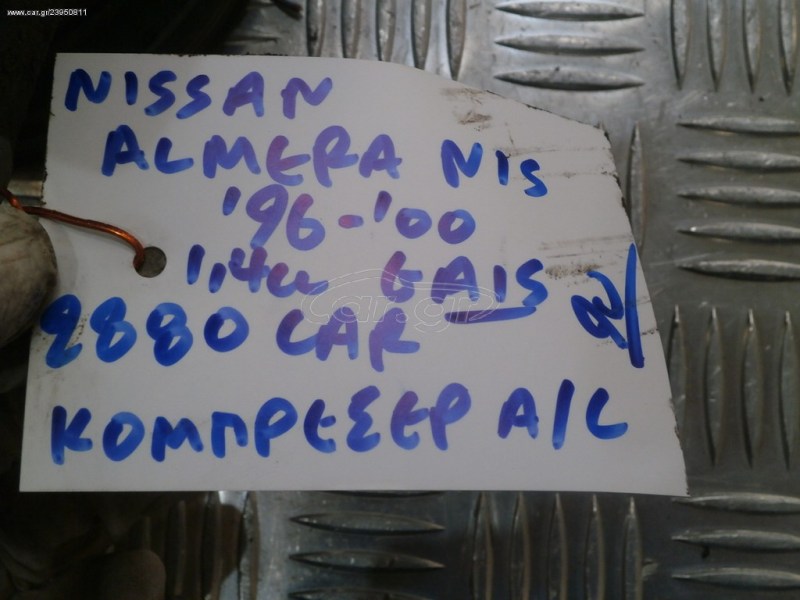 www.car.gr/23950811
NISSAN
ALMERA NIS
'96-'00
1,4cc GA15
9880 CAR
ΚΟΜΠΡΕΣΕΡ A/C